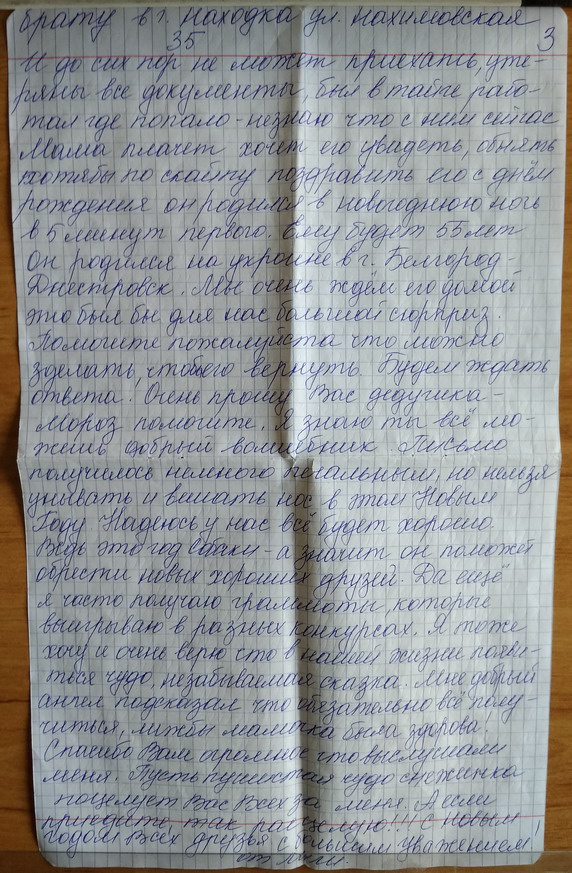 брату в г. Находка ул. Нахимовская
35 3
И до сих пор не может приехать, уте-
ряны все документы, был в тайге рабо-
тал где попало - незнаю что с ним сейчас
Мама плачет хочет его увидеть, обнять
хотябы по скайпу поздравить его с днём
рождения он родился в новогоднюю ночь
в 5 минут первого. Ему будет 55 лет
Он родился на украине в г. Белгород-
Днестровск. Мы очень ждём его домой
это был бы для нас большой сюрприз.
Помогите пожалуйста что можно
зделать, чтобы его вернуть. Будем ждать
ответа! Очень прошу Вас дедушка-
Мороз помогите. Я знаю ты всё мо-
жешь добрый волшебник. Письмо
получилось немного печальным, но нельзя
унывать и вешать нос в этом Новым
Году. Надеюсь у нас всё будет хорошо.
Ведь это год Собаки - а значит он поможет
обрести новых хороших друзей. Да ещё
я часто получаю граммоты, которые
выигрываю в разных конкурсах. Я тоже
хочу и очень верю что в нашей жизни появи-
тся чудо, незабываемая сказка. Мне добрый
ангел подсказал что обязательно всё полу-
читься, лижбы мамочка была здорова!
Спасибо Вам огромное что выслушали
меня. Пусть пушистая чудо снежинка
поцелует Вас Всех за меня. А если
приедите, так расцелую!!! С Новым
годом Всех друзья с большим уважением!
от